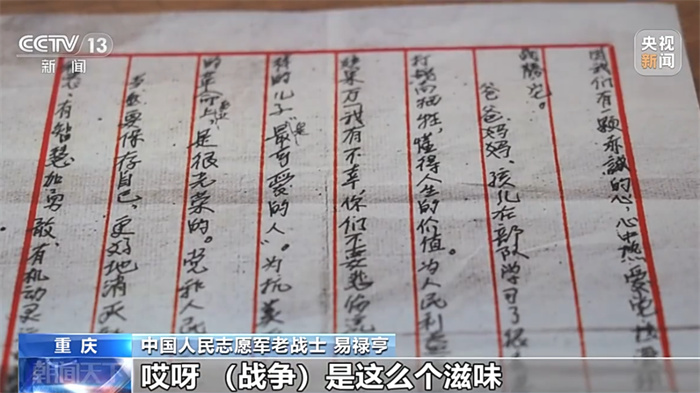 CCTV 13
新闻
央视
新闻
因我们有一颗赤诚的心,心中热爱
战胜它。
爸爸妈妈,孩儿在部队学习了很
打仗而牺牲,懂得人生的价值为人民利益
如果万一我有不幸你们不要悲伤
样的儿子是“最可爱的人”。为抗美
的革命上是很光荣的。党和人民
当然要保存自己,更好地消灭
有智慧加勇敢,有机动灵
重庆
中国人民志愿军老战士 易禄亨
朝闻天下
哎呀 (战争)是这么个滋味